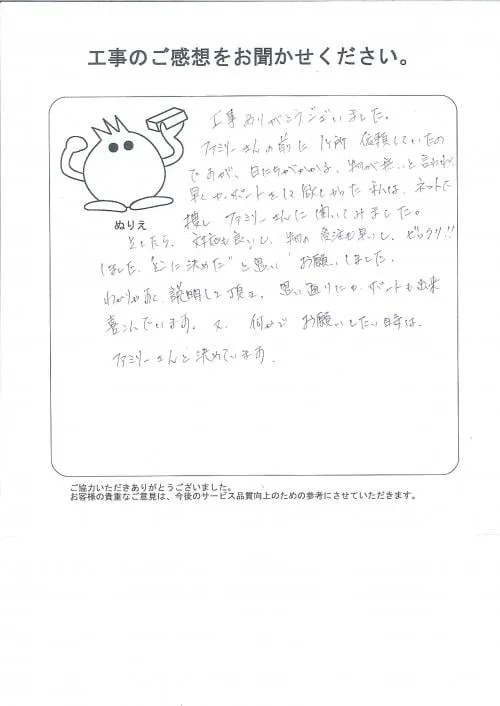 工事のご感想をお聞かせください。
工事ありがとうございました。
ファミリーさんの前に 1ヶ所 依頼していたの
ですが、日にちがかかる、物が無いと言われ、
早くカーポートをして欲しかった私は、ネットで
捜し ファミリーさんに聞いてみました。
ぬりえ
そしたら、対応も良いし、物の発注も早いし、ビックリ!!
しました。"ここに決めた"と思い お願いしました。
わかりやすく 説明して頂き、思い通りにカーポートも出来
喜こんでいます。又、何かで お願いしたい時は、
ファミリーさんと決めています。
ご協力いただきありがとうございました。
お客様の貴重なご意見は、今後のサービス品質向上のための参考にさせていただきます。